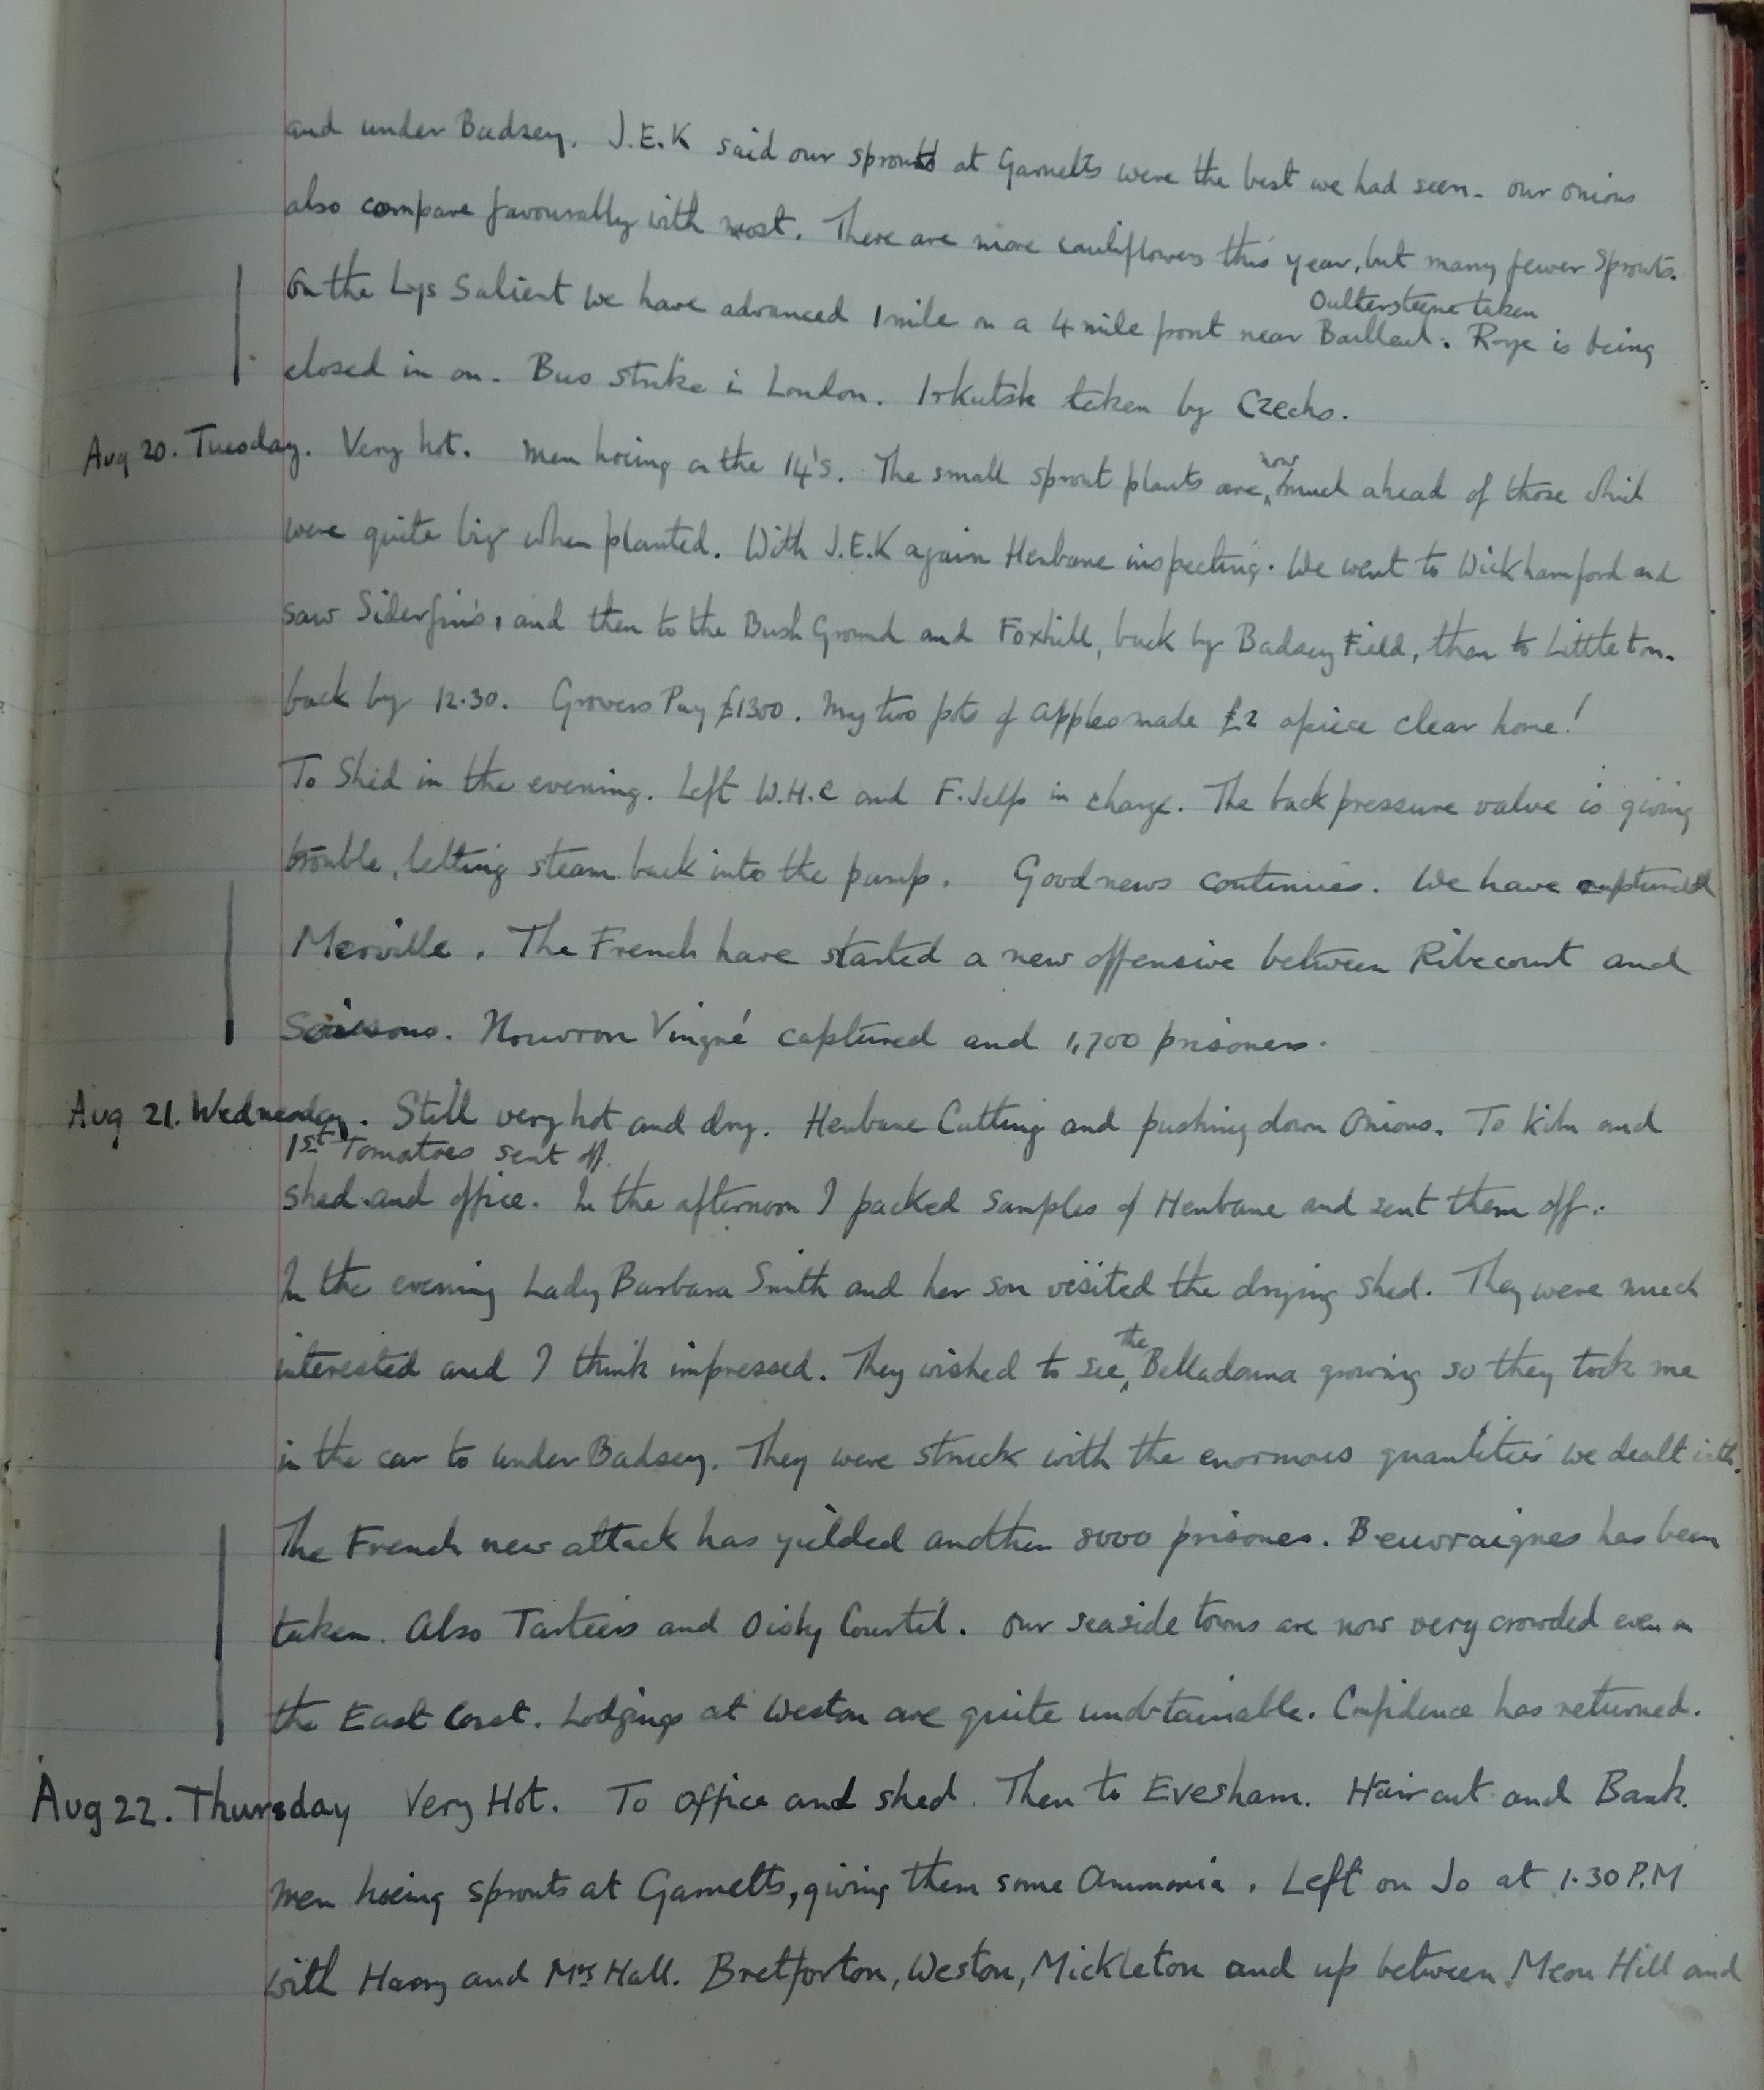 and under Badsey. J.E.K said our sprouts at Garnetts were the best we had seen. our onions
also compare favourably with most. There are more cauliflowers this year, but many fewer sprouts.
Oultersteene taken
On the Lys Salient we have advanced 1 mile on a 4 mile front near Bailleul. Roye is being
closed in on. Bus strike in London. Irkutsk taken by Czechs.
now
Aug 20. Tuesday. Very hot. Men hoeing on the 14's. The small sprout plants are much ahead of those which
were quite big when planted. With J.E.K again Henbane inspecting. We went to Wickhamford and
saw Siderfin's, and then to the Bush Ground and Foxhill, back by Badsey Field, then to Littleton.
back by 12.30. Growers Pay £1300. My two pots of apples made £2 apiece clear home!
To Shed in the evening. Left W.H.C and F. Jelfs in charge. The back pressure valve is giving
trouble, letting steam back into the pump. Good news continues. We have captured
Merville. The French have started a new offensive between Ribecourt and
Soissons. Nouvron Vingré captured and 1,700 prisoners.
Aug 21. Wednesday. Still very hot and dry. Henbane Cutting and pushing down Onions. To Kiln and
1st Tomatoes sent off.
shed and office. In the afternoon I packed samples of Henbane and sent them off.
In the evening Lady Barbara Smith and her son visited the drying shed. They were much
the
interested and I think impressed. They wished to see Belladonna growing so they took me
in the car to under Badsey. They were struck with the enormous quantities we dealt with.
The French new attack has yielded another 8000 prisoners. Beuvraignes has been
taken. Also Tartiers and Oisly Courtil. Our seaside towns are now very crowded even on
the East Coast. Lodgings at Weston are quite unobtainable. Confidence has returned.
Aug 22. Thursday Very Hot. To office and shed. Then to Evesham. Hair cut and Bank.
Men hoeing sprouts at Garnetts, giving them some Ammonia. Left on Jo at 1.30 P.M
with Harry and Mrs Hall. Bretforton, Weston, Mickleton and up between Meon Hill and